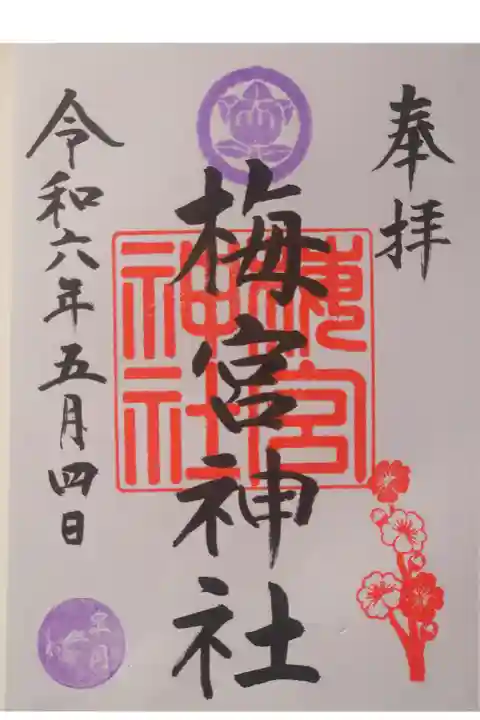 奉拝
梅宮神社
梅宮神社
令和六年五月四日
皐月